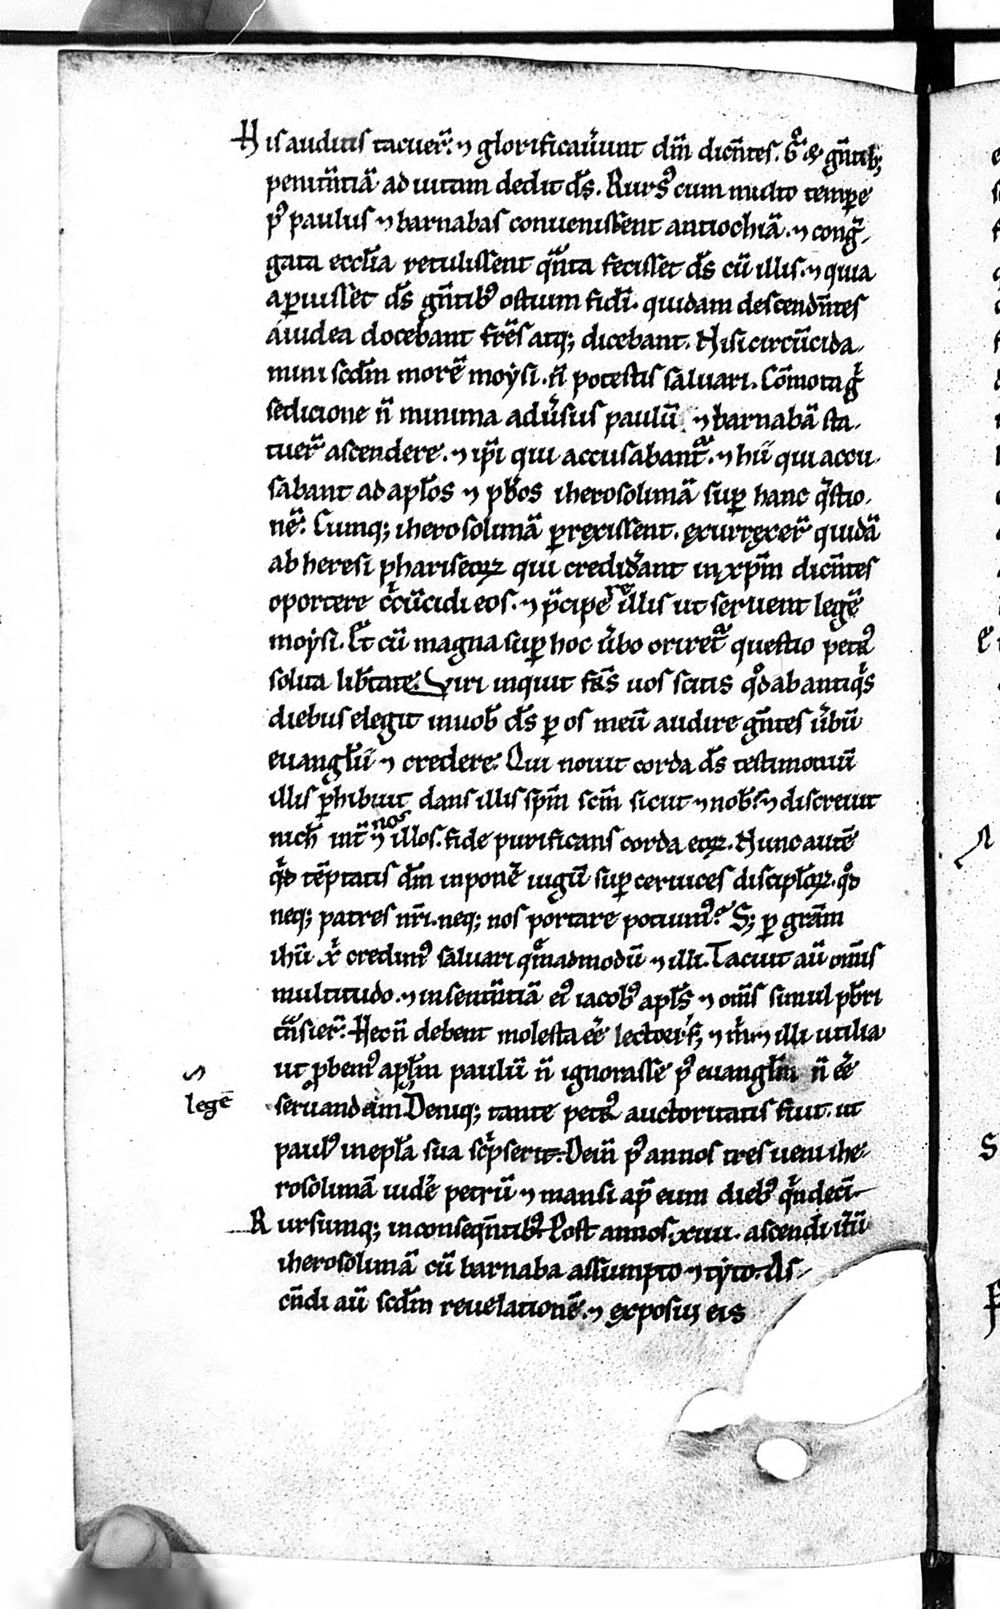 His auditis tacuer̄. ⁊ glorificauer̄unt dm̄ dicn̄tes. Gͦ ⁊ gn̄tib;
penitn̄tiā ad uitam dedit ds̄. Rursꝰ cum multo tempr̄e
pꝰ paulus ⁊ barnabas conuenissent antiochiā. ⁊ congr̄-
gata eccl̄ia retulissent qͣnta fecisset ds̄ cū illis. ⁊ quia
aꝑuisset ds̄ gn̄tibꝰ ostium fidī. quidam descendn̄tes
a iudea docebant fr̄es atq; dicebant. Nisi circūcida-
mini scd̄m morē moysi. n̄ potestis saluari. Cōmota gͥ
sedicione n̄ minima adũsus paulū ⁊ barnabā sta-
tuer̄ ascendere. ⁊ ip̄i qui accusabant̃. ⁊ hii qui accu-
sabant ad apl̄os ⁊ pb̄ros iherosolimā suꝑ hanc qͣstio-
nē. Cumq; iherosolimā ꝑrexissent. exurrexer̄ quidā
ab heresi phariseoꝝ qui crediderant in xp̄m dicn̄tes
oportere cͥcūcidi eos. ⁊ p̄cipe re illis ut seruent legē
moysi. Et cū magna suꝑ hoc ũbo oriret̃ questio petrꝰ
solita lib̄tate. Viri inquit frēs uos scitis qͦd ab antiqͥs
diebus elegit in uob̄ ds̄ ꝑ os meū audire gn̄tes ũbū
euangl̄ii ⁊ credere. Qui nouit corda ds̄ testimoniū
illis ꝑhibuit dans illis sp̄m scm̄ sicut ⁊ nob̄. ⁊ discreuit
nich̄ int̄ nos ⁊ illos. fide purificans corda eoꝝ. Nunc autē
qͥd tēptatis dm̄ inponer̄ iugū suꝑ ceruices discipl̄oꝝ. qͦd
neq; patres nr̄i. neq; nos portare potuimꝰ? S; ꝑ grām
ihū xͥ credimꝰ saluari qͣmadmodū ⁊ illi. Tacuit aū omīs
multitudo. ⁊ in sentn̄tiā eiꝰ iacobꝰ apl̄s ⁊ om̄s simul pb̄ri
tͣnsier̄. Hec n̄ debent molesta eē̄ lectoeri, ⁊ m̄ ⁊ illi utilia
ut ꝓbemꝰ apl̄m paulū n̄ ignorasse pꝰ euangl̄m n̄ eē̄
legē
seruandam. Deniq; tante petrꝰ auctoritatis fuit. ut
paulꝰ in epl̄a sua scͥpserit. Dein̄ pꝰ annos tres ueni ihe-
rosolimā uidēr petrū ⁊ mansi ap̄ eum diebꝰ qͥndecī.
Rursumq; in conseqn̄tibꝰ. Post annos. xiiii. ascendi itũ
iherosolimā cū barnaba assumpto ⁊ tyto. As-
cn̄di aū scd̄m reuelationē. ⁊ exposui eis